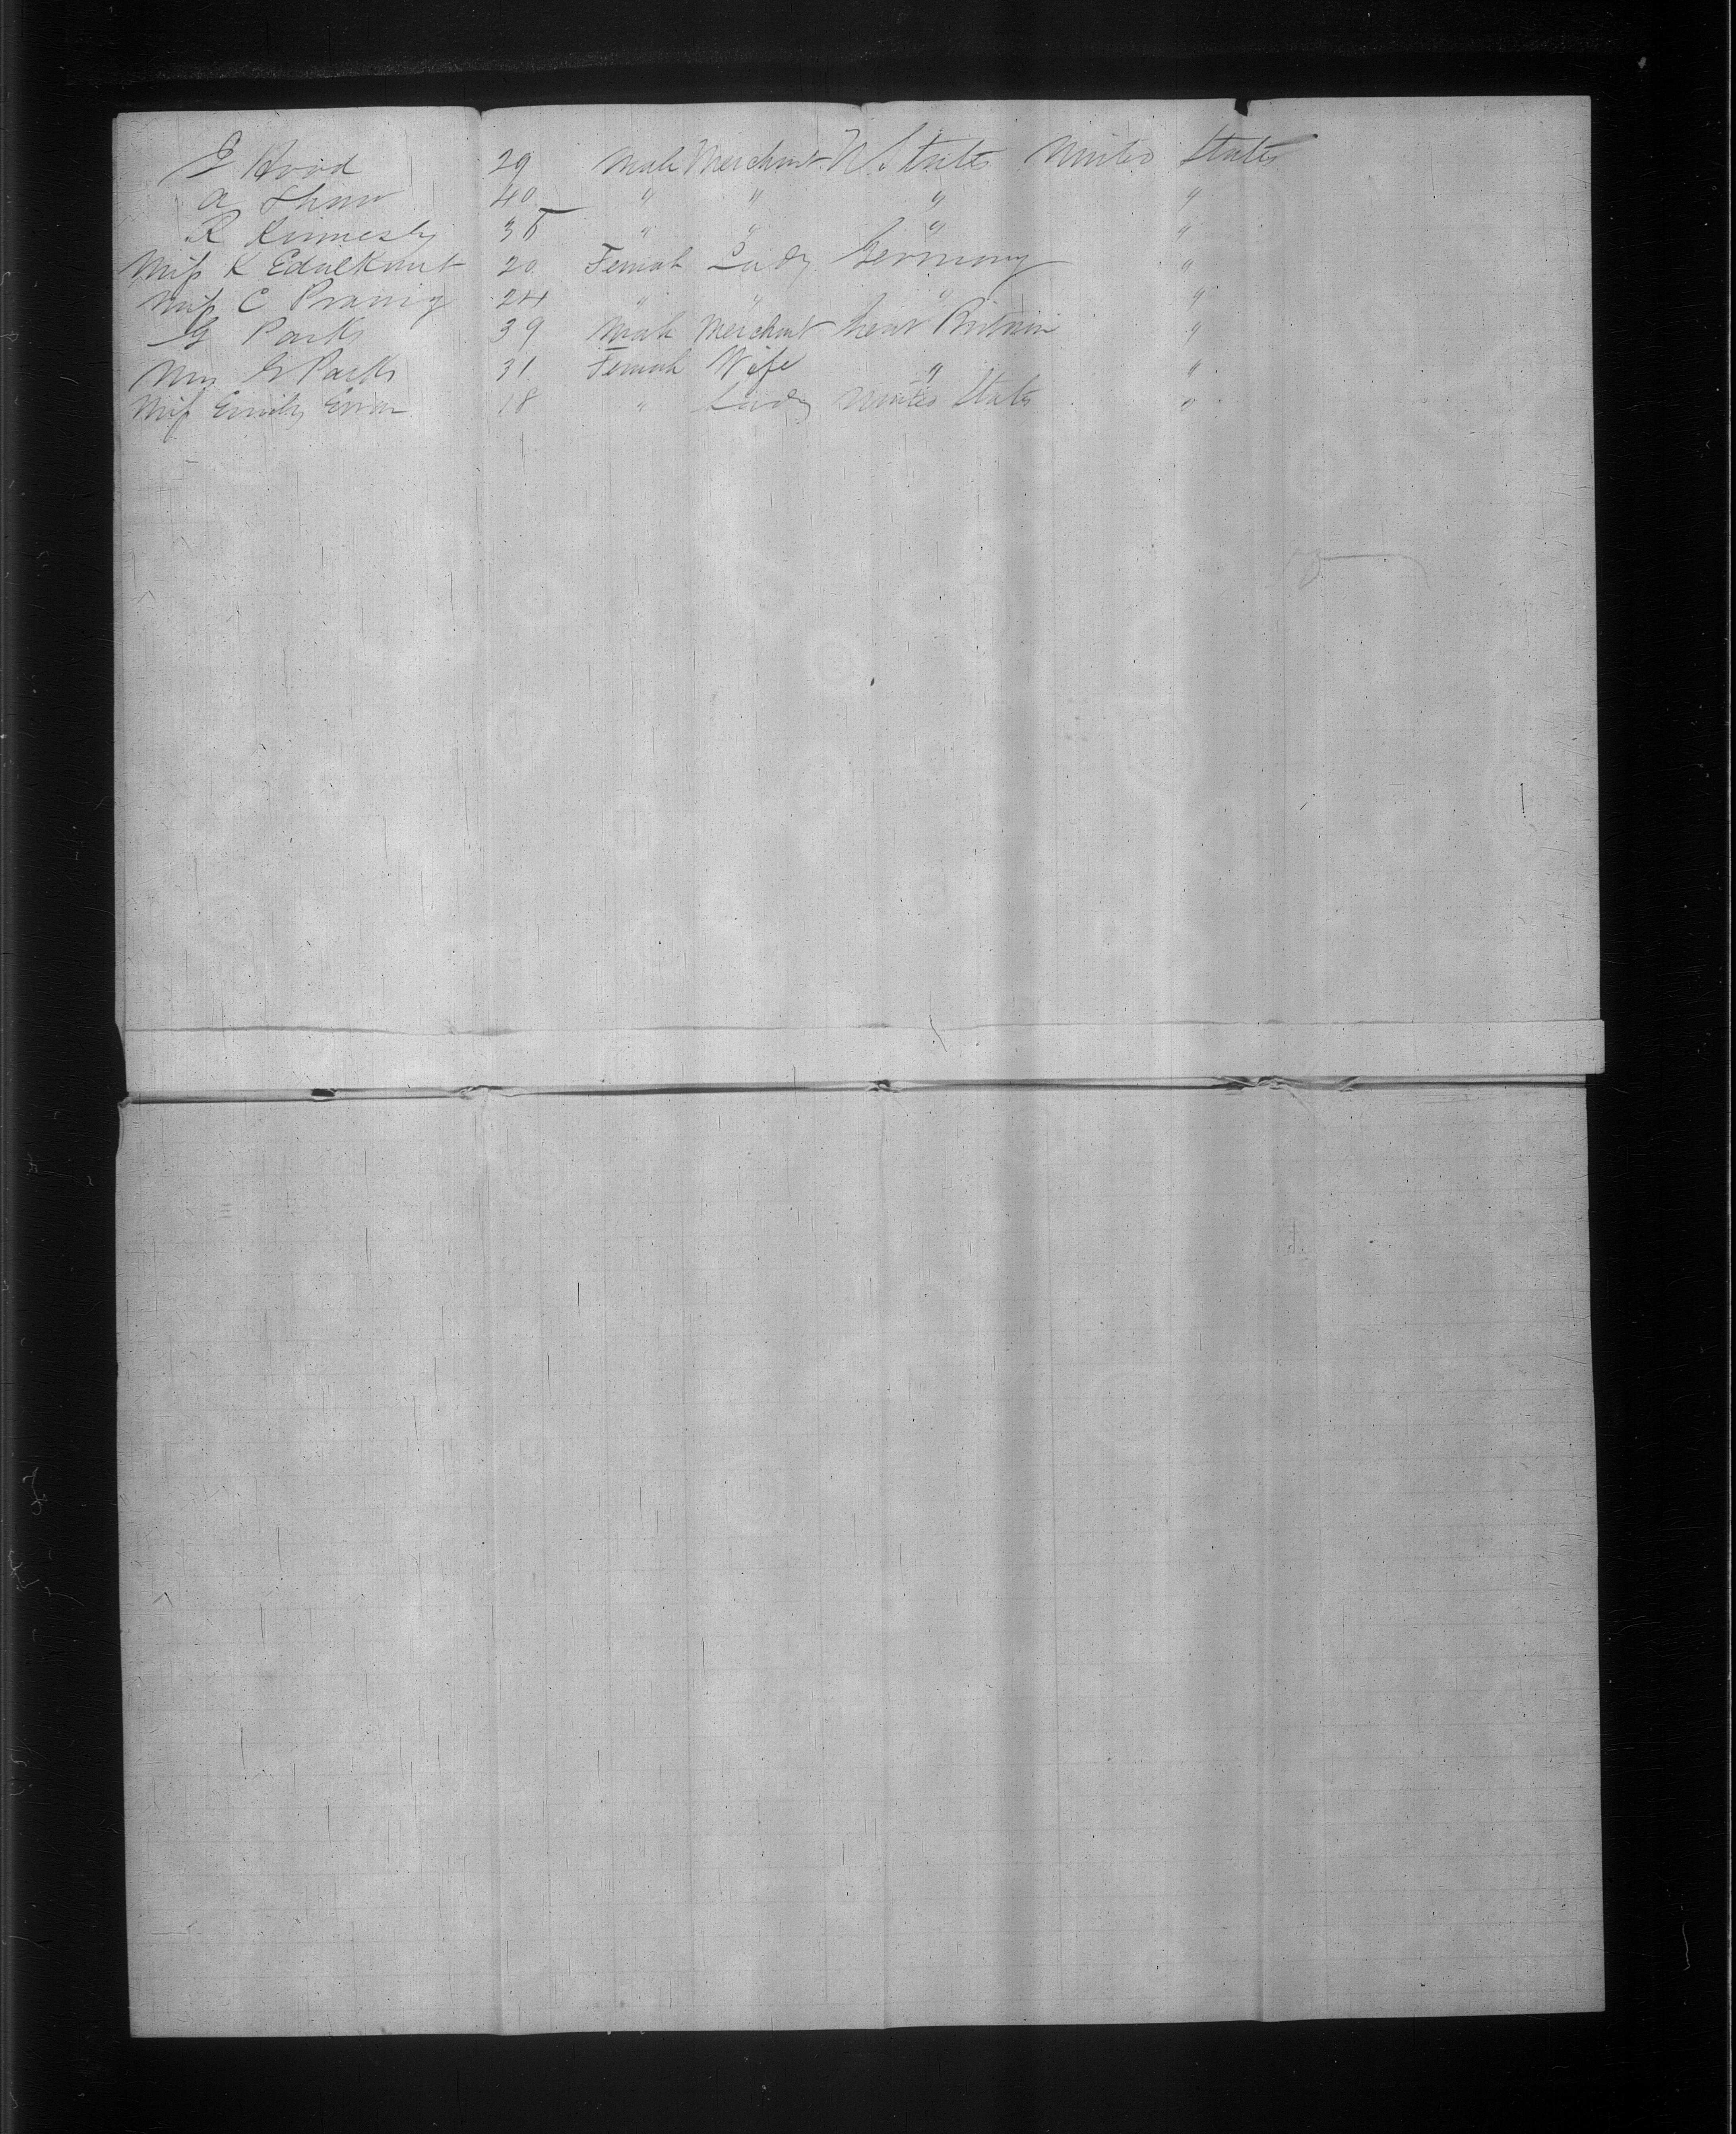 E Hood 29 Male Merchant U. States United States
A Shaw 40 " " " "
R 35 " " " "
Miss K 20 Female Lady Germany "
Miss C 24 " " " "
G Parks 39 Male Merchant Great Britain "
Mrs G Parks 31 Female Wife " "
Miss Emily 18 " Lady United States "